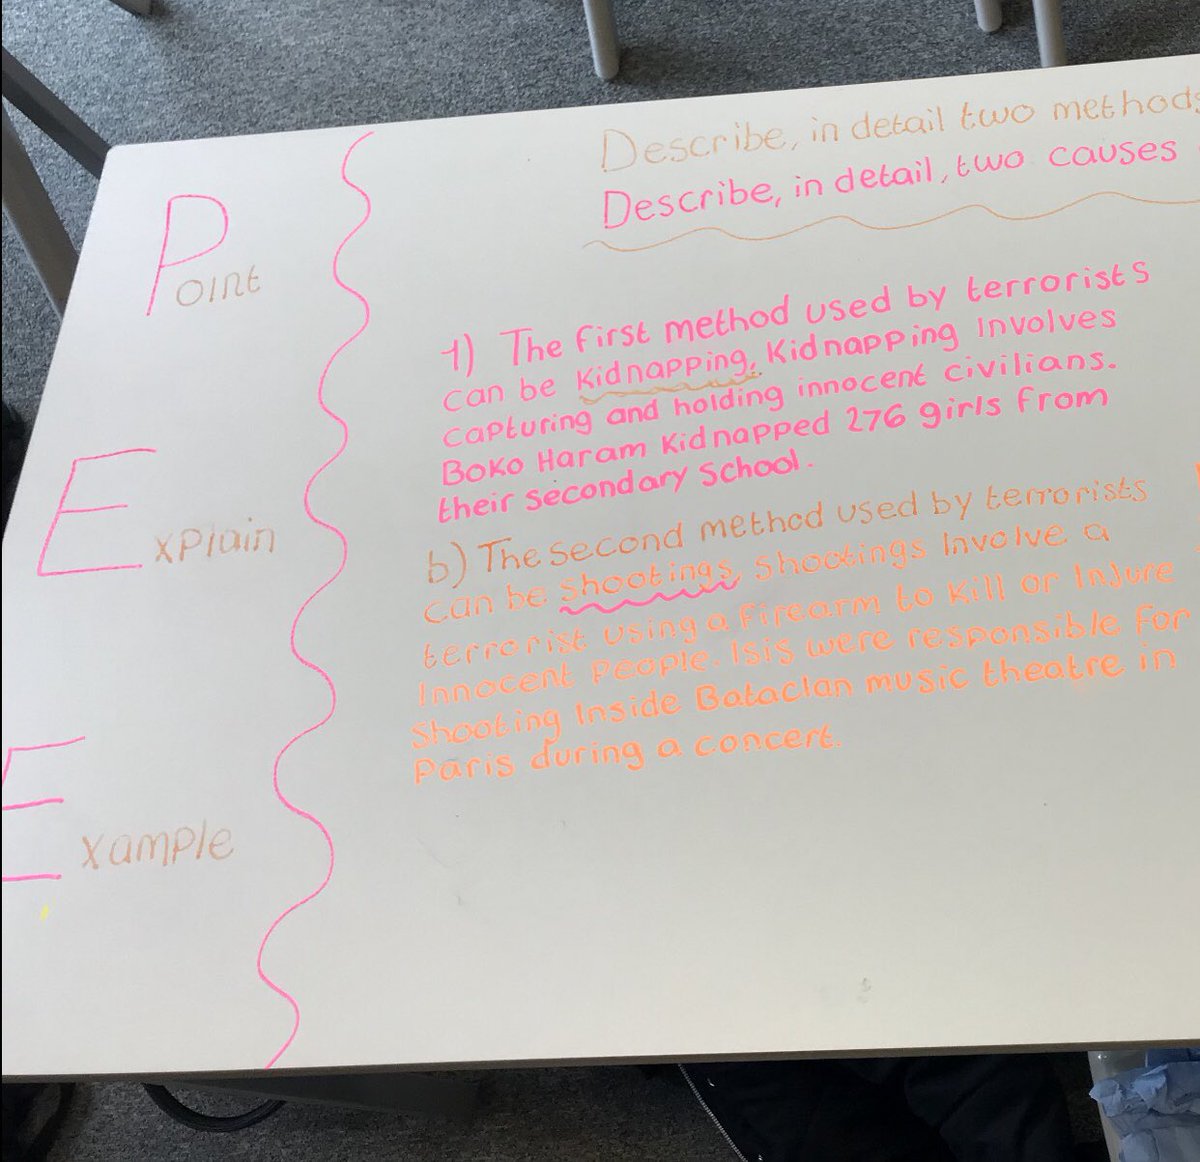 Point
Explain
Example
Describe, in detail two methods
Describe, in detail, two causes
1) The first method used by terrorists
can be Kidnapping. Kidnapping Involves
capturing and holding innocent civilians.
Boko Haram Kidnapped 276 girls from
their secondary School.
b) The second method used by terrorists
can be shootings, shootings Involve a
terrorist using a firearm to kill or Injure
Innocent People. Isis were responsible for
Shooting Inside Bataclan music theatre in
Paris during a concert.